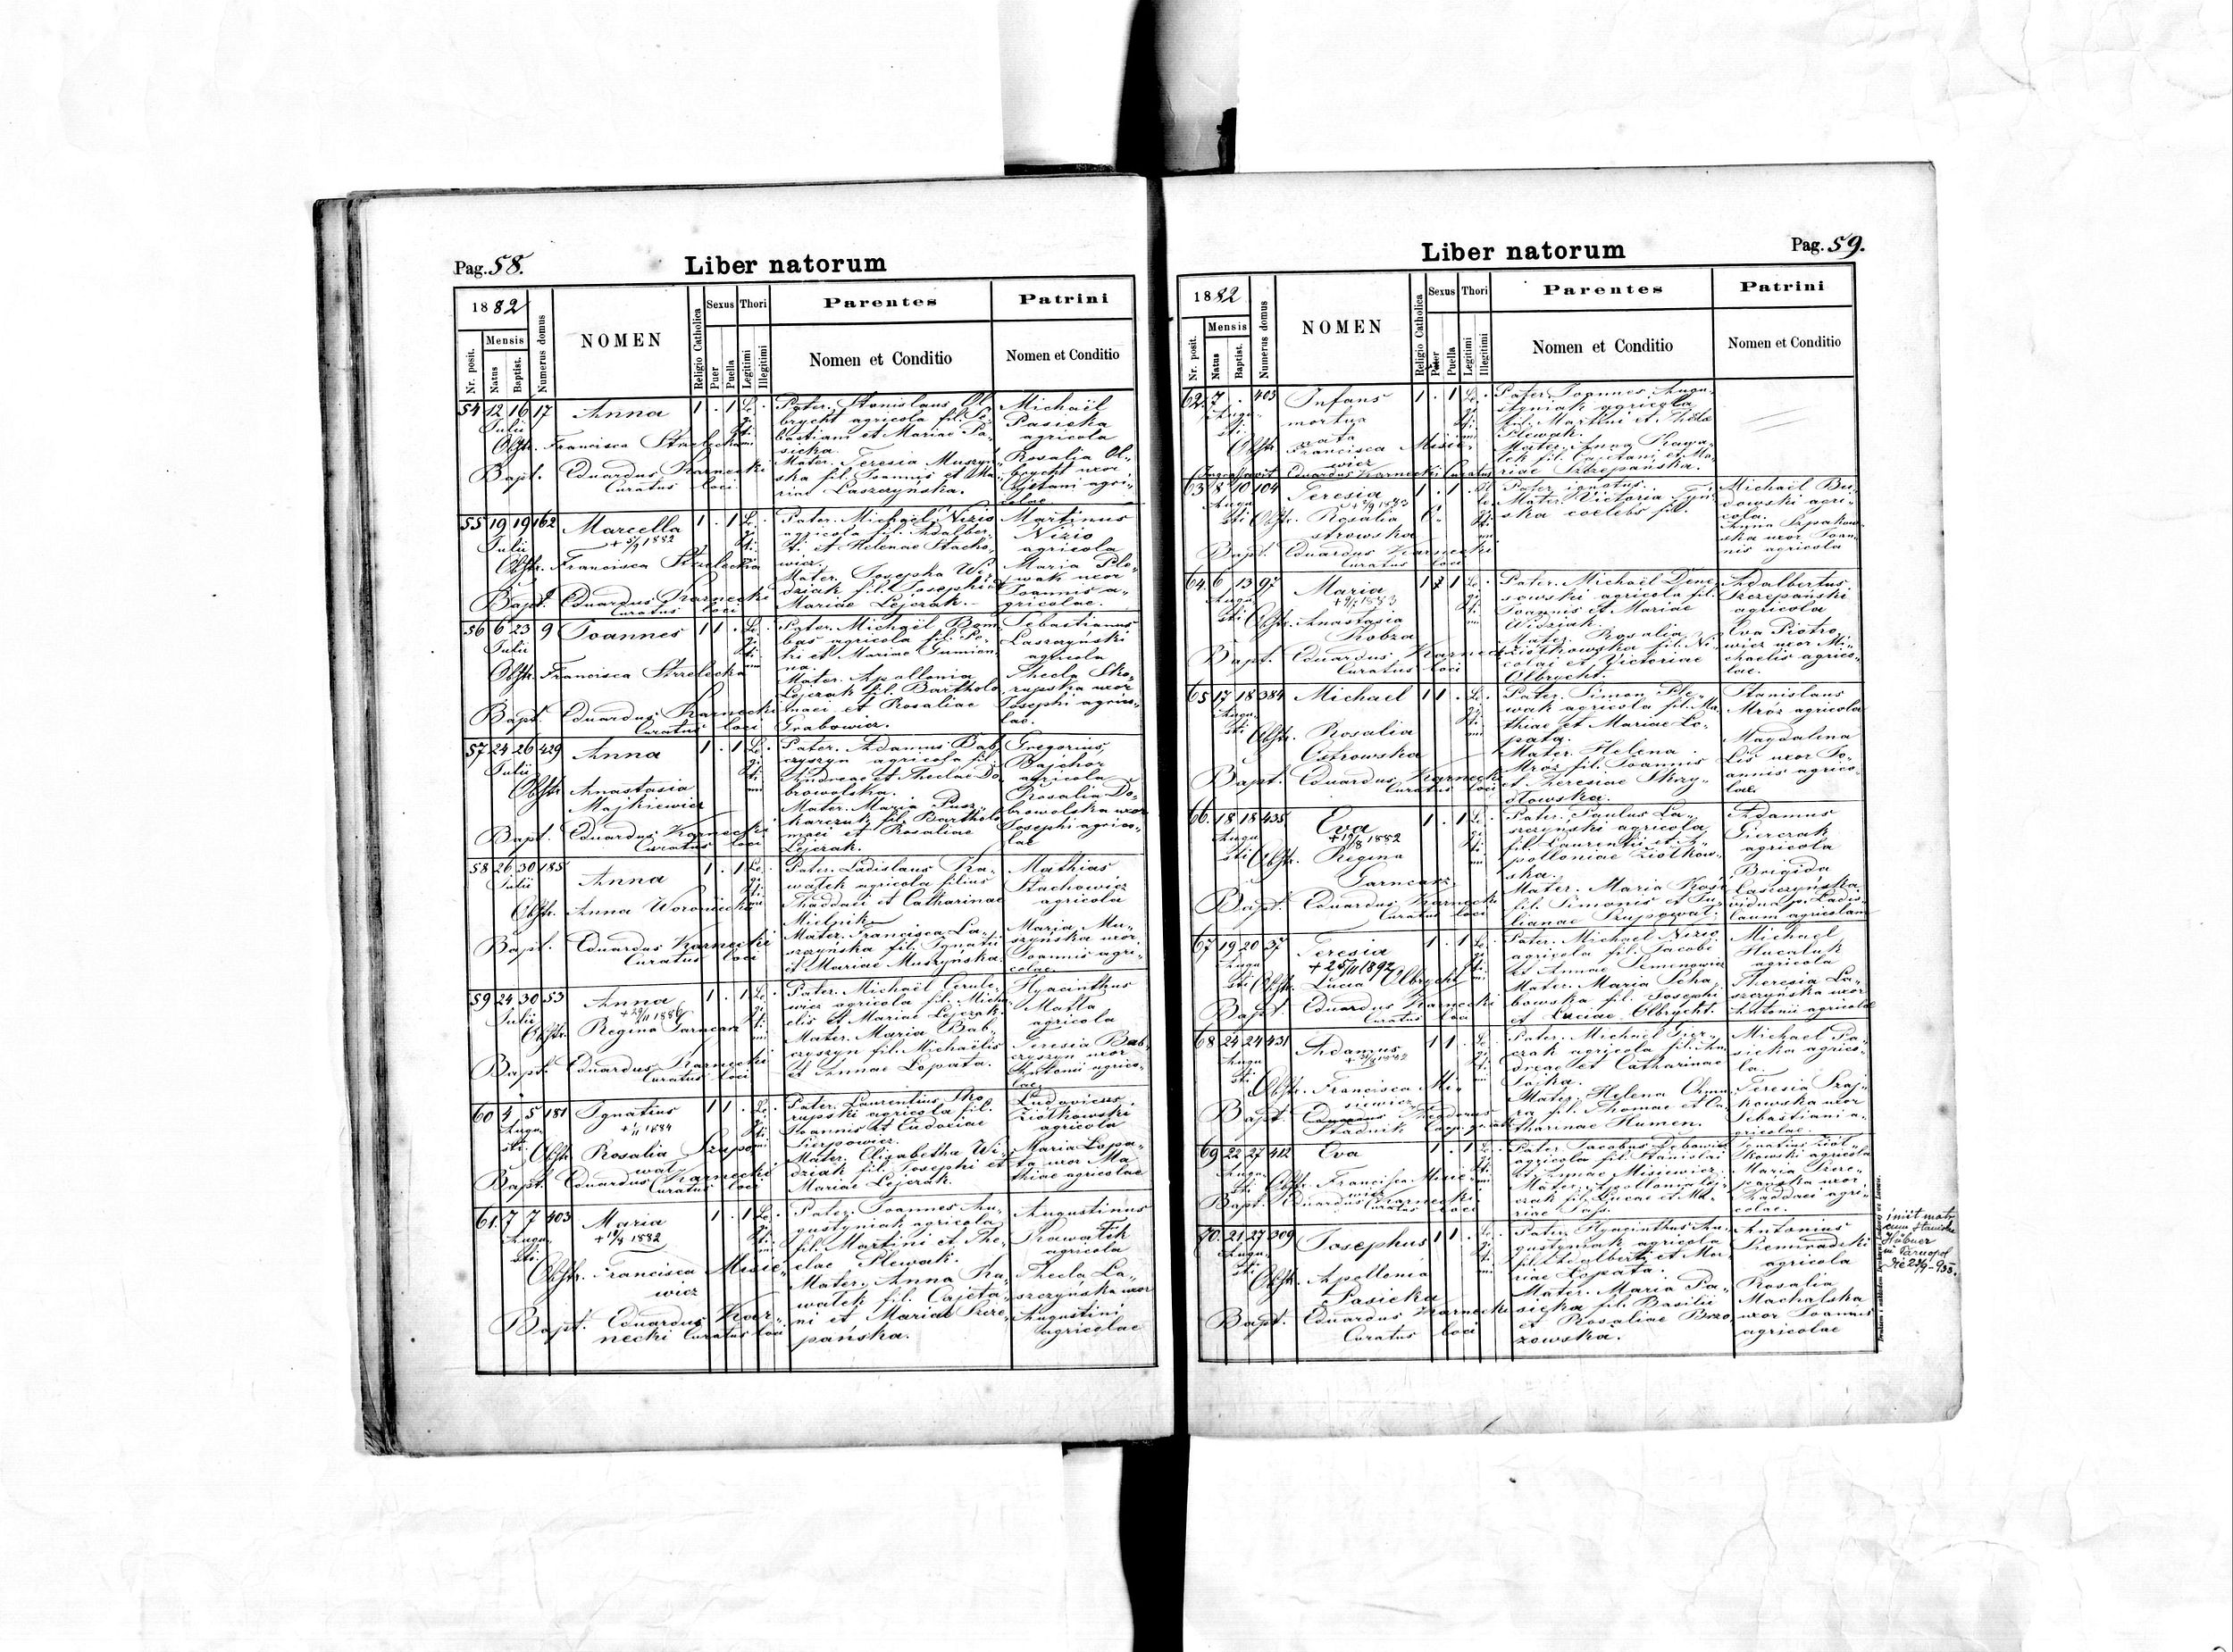 Pag. 58.
Liber natorum
1882
Numerus domus
NOMEN
Religio Catholica
Sexus
Thori
Parentes
Patrini
Nr. posit.
Mensis
Natus
Baptist.
Puer
Puella
Legitimi
Illegitimi
Nomen et Conditio
Nomen et Conditio
54 12 16 17 Anna 1 . 1
Julii
Obstr. Francisca Strzelecka
Bapt. Eduardus Karnecki
Curatus loci
Pater. Stanislaus Ol
brycht agricola fil. Se
bastiani et Mariae Pa
sicka.
Mater. Teresia Muszyń
ska fil. Joannis et Ma
riae Laszczyńska.
Michaël
Pasicka
agricola
Rosalia Ol
brycht uxor
Cajetani agri
colae
55 19 19 162 Marcella 1 . 1
+ 5/9 1882
Julii
Obstr. Francisca Strzelecka
Bapt. Eduardus Karnecki
Curatus loci
Pater. Michaël Nizio
agricola fil. Adalber
ti et Helenae Stacho
wicz.
Mater. Josepha Wi
dziak fil. Josephi et
Mariae Lejczak.
Martinus
Nizio
agricola
Maria Ple
wak uxor
Joannis a
gricolae.
56 6 23 9 Joannes 1 1 .
Julii
Obstr. Francisca Strzelecka
Bapt. Eduardus Karnecki
Curatus loci
Pater. Michaël Bom
bas agricola fil. Pe
tri et Mariae Gumien
na.
Mater. Apollonia
Lejczak fil. Bartholo
maei et Rosaliae
Grabowicz.
Sebastianus
Laszczyński
agricola
Thecla Sko
rupska uxor
Josephi agrico
lae.
57 24 26 429 Anna 1 . 1
Julii
Obstr. Anastasia
Majkiewicz
Bapt. Eduardus Karnecki
Curatus loci
Pater. Adamus Bab
czyszyn agricola fil.
Andreae et Theclae Do
browolska.
Mater. Maria Pusz
karczuk fil. Bartholo
maei et Rosaliae
Lejczak.
Gregorius
Bajchor
agricola
Rosalia Do
browolska uxor
Josephi agrico
lae
58 26 30 185 Anna 1 . 1
Julii
Obstr. Anna Woroniecka
Bapt. Eduardus Karnecki
Curatus loci
Pater. Ladislaus Kra
watek agricola filius
Thaddaei et Catharinae
Mielnik
Mater. Francisca La
szczyńska fil. Ignatii
et Mariae Muszyńska.
Mathias
Stachowicz
agricola
Maria Mu
szyńska uxor
Joannis agri
colae.
59 24 30 53 Anna 1 . 1
Julii
Obstr. Regina Garncarz
Bapt. Eduardus Karnecki
Curatus loci
Pater. Michaël Cerule
wicz agricola fil. Micha
elis et Mariae Lejczak.
Mater. Maria Bab
czyszyn fil. Michaëlis
et Annae Lopata.
Hyacinthus
Matla
agricola
Teresia Bab
czyszyn uxor
Antonii agrico
lae
60 4 5 181 Ignatius 1 1 .
Augu
sti
Obstr. Rosalia Szupo
wal
Bapt. Eduardus Karnecki
Curatus loci
Pater. Laurentius Sko
rupski agricola fil.
Joannis et Eudociae
Sierpowicz.
Mater. Elizabetha Wi
dziak fil. Josephi et
Mariae Lejczak.
Ludovicus
Ziółkowski
agricola
Maria Lopa
ta uxor Ma
thiae agricolae
61. 7 7 403 Maria 1 . 1
Augu
sti
Obstr. Francisca Misie
wicz
Bapt. Eduardus Kar
necki Curatus loci
Pater. Joannes Au
gustyniak agricola
fil. Martini et The
clae Plewak.
Mater. Anna Kra
watek fil. Cajeta
ni et Mariae Szcze
pańska.
Augustinus
Krawatek
agricola
Thecla La
szczyńska uxor
Augustini
agricolae
Liber natorum
Pag. 59.
1882
Numerus domus
NOMEN
Religio Catholica
Sexus
Thori
Parentes
Patrini
Nr. posit.
Mensis
Natus
Baptist.
Puer
Puella
Legitimi
Illegitimi
Nomen et Conditio
Nomen et Conditio
62. 7 . 403 Infans 1 . 1
Augu
sti
mortua
nata
Obstr. Francisca Misie
wicz
Eduardus Karnecki Curatus
Pater. Joannes Augu
styniak agricola
fil. Martini et Theclae
Plewak.
Mater. Anna Krawa
tek fil. Cajetani et Ma
riae Szczepańska.
63 8 10 104 Teresia 1 . 1
Augu
sti Obstr. Rosalia O
strowska
Bapt. Eduardus Karnecki
Curatus loci
Pater ignotus.
Mater. Victoria
ska coelebs fil.
Michaël Bu
dowski agri
cola.
Anna Szpakow
ska uxor Joan
nis agricola
64 6 13 97 Maria 1 1
Augu
sti Obstr. Anastasia
Kobza
Bapt. Eduardus Karnecki
Curatus loci
Pater. Michaël Dene
sowski agricola fil.
Joannis et Mariae
Widziak.
Mater. Rosalia
Ziółkowska fil. Ni
colai et Victoriae
Olbrycht.
Adalbertus
Szczepański
agricola
Eva Piotro
wicz uxor Mi
chaelis agrico
lae.
65 17 18 384 Michael 1 1 .
Augu
sti Obstr. Rosalia
Ostrowska
Bapt. Eduardus Karnecki
Curatus loci
Pater. Simon Ple
wak agricola fil. Ma
thiae et Mariae Lo
pata.
Mater. Helena
Mróz fil. Joannis
et Teresiae Skrzy
dłowska.
Stanislaus
Mróz agricola
Magdalena
Lis uxor Jo
annis agrico
lae.
66. 18 18 435 Eva 1 . 1
+ 19/8 1882
Augu
sti Obstr. Regina
Garncarz
Bapt. Eduardus Karnecki
Curatus loci
Pater. Paulus La
szczyński agricola
fil. Laurentii et A
polloniae Ziółkow
ska.
Mater. Maria Koś
fil. Simonis et Ju
lianae Szupowal.
Adamus
Gierczak
agricola
Brigida
Laszczyńska
vidua p. Ladis
laum agricolam
67 19 20 37 Teresia 1 . 1
+ 25/11 1892
Augu
sti Obstr. Lucia Olbrycht
Bapt. Eduardus Karnecki
Curatus loci
Pater. Michael Nizio
agricola fil. Jacobi
et Annae Semenowicz
Mater. Maria Scha
bowska fil. Josephi
et Luciae Olbrycht.
Michael
Hucaluk
agricola
Theresia La
szczyńska uxor
Antonii agricolae
68 24 24 431 Adamus 1 1 .
Augu
sti
Obstr. Francisca Mi
siewicz
Bapt. Theodorus
Stadnik
Pater. Michaël Gier
czak agricola fil. An
dreae et Catharinae
Saska.
Mater. Helena
fil. Thomae et Ca
tharinae Humen.
Michael Pa
sicka agrico
la.
Teresia Szaj
kowska uxor
Sebastiani a
gricolae.
69 22 27 412 Eva 1 . 1
Augu
sti Obstr. Francisca Misie
wicz
Bapt. Eduardus Karnecki
Curatus loci
Pater. Jacobus
agricola fil. Stanislai
et Annae Misiewicz.
Mater. Apollonia Lej
czak fil. Lucae et Ma
riae
Ignatius Ziół
kowski agricola
Maria Szcze
pańska uxor
Thaddaei agri
colae.
70. 21 27 309 Josephus 1 1 .
Augu
sti
Obstr. Apollonia
Pasicka
Bapt. Eduardus Karnecki
Curatus loci
Pater. Hyacinthus Au
gustyniak agricola
fil. Adalberti et Ma
riae Lopata.
Mater. Maria Pa
sicka fil. Basilii
et Rosaliae Brzo
zowska.
Antonius
Siemiradzki
agricola
Rosalia
Machalska
uxor Joannis
agricolae
iniit matr.
cum Stanislao
Hübner
in Tarnopol